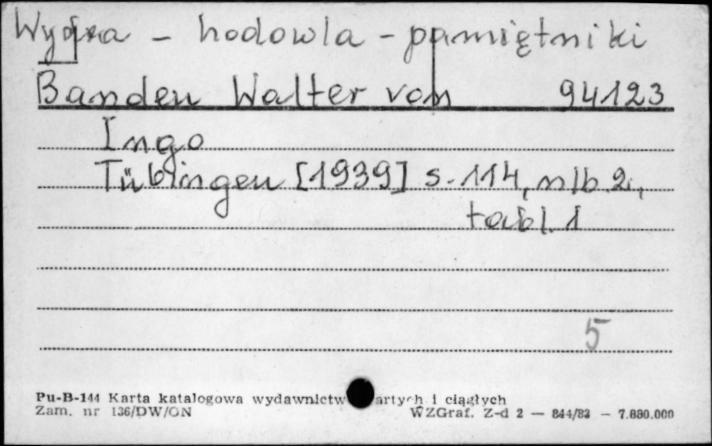 Wydra - hodowla - pamiętniki
Banden Walter von 94123
Ingo
Tübingen [1939] s. 114, nlb 2,
tabl. 1
5
Pu-B-144 Karta katalogowa wydawnictw artych i ciągłych
Zam. nr 136/DW/GN WZGraf. Z-d 2 — 844/83 — 7.880.000